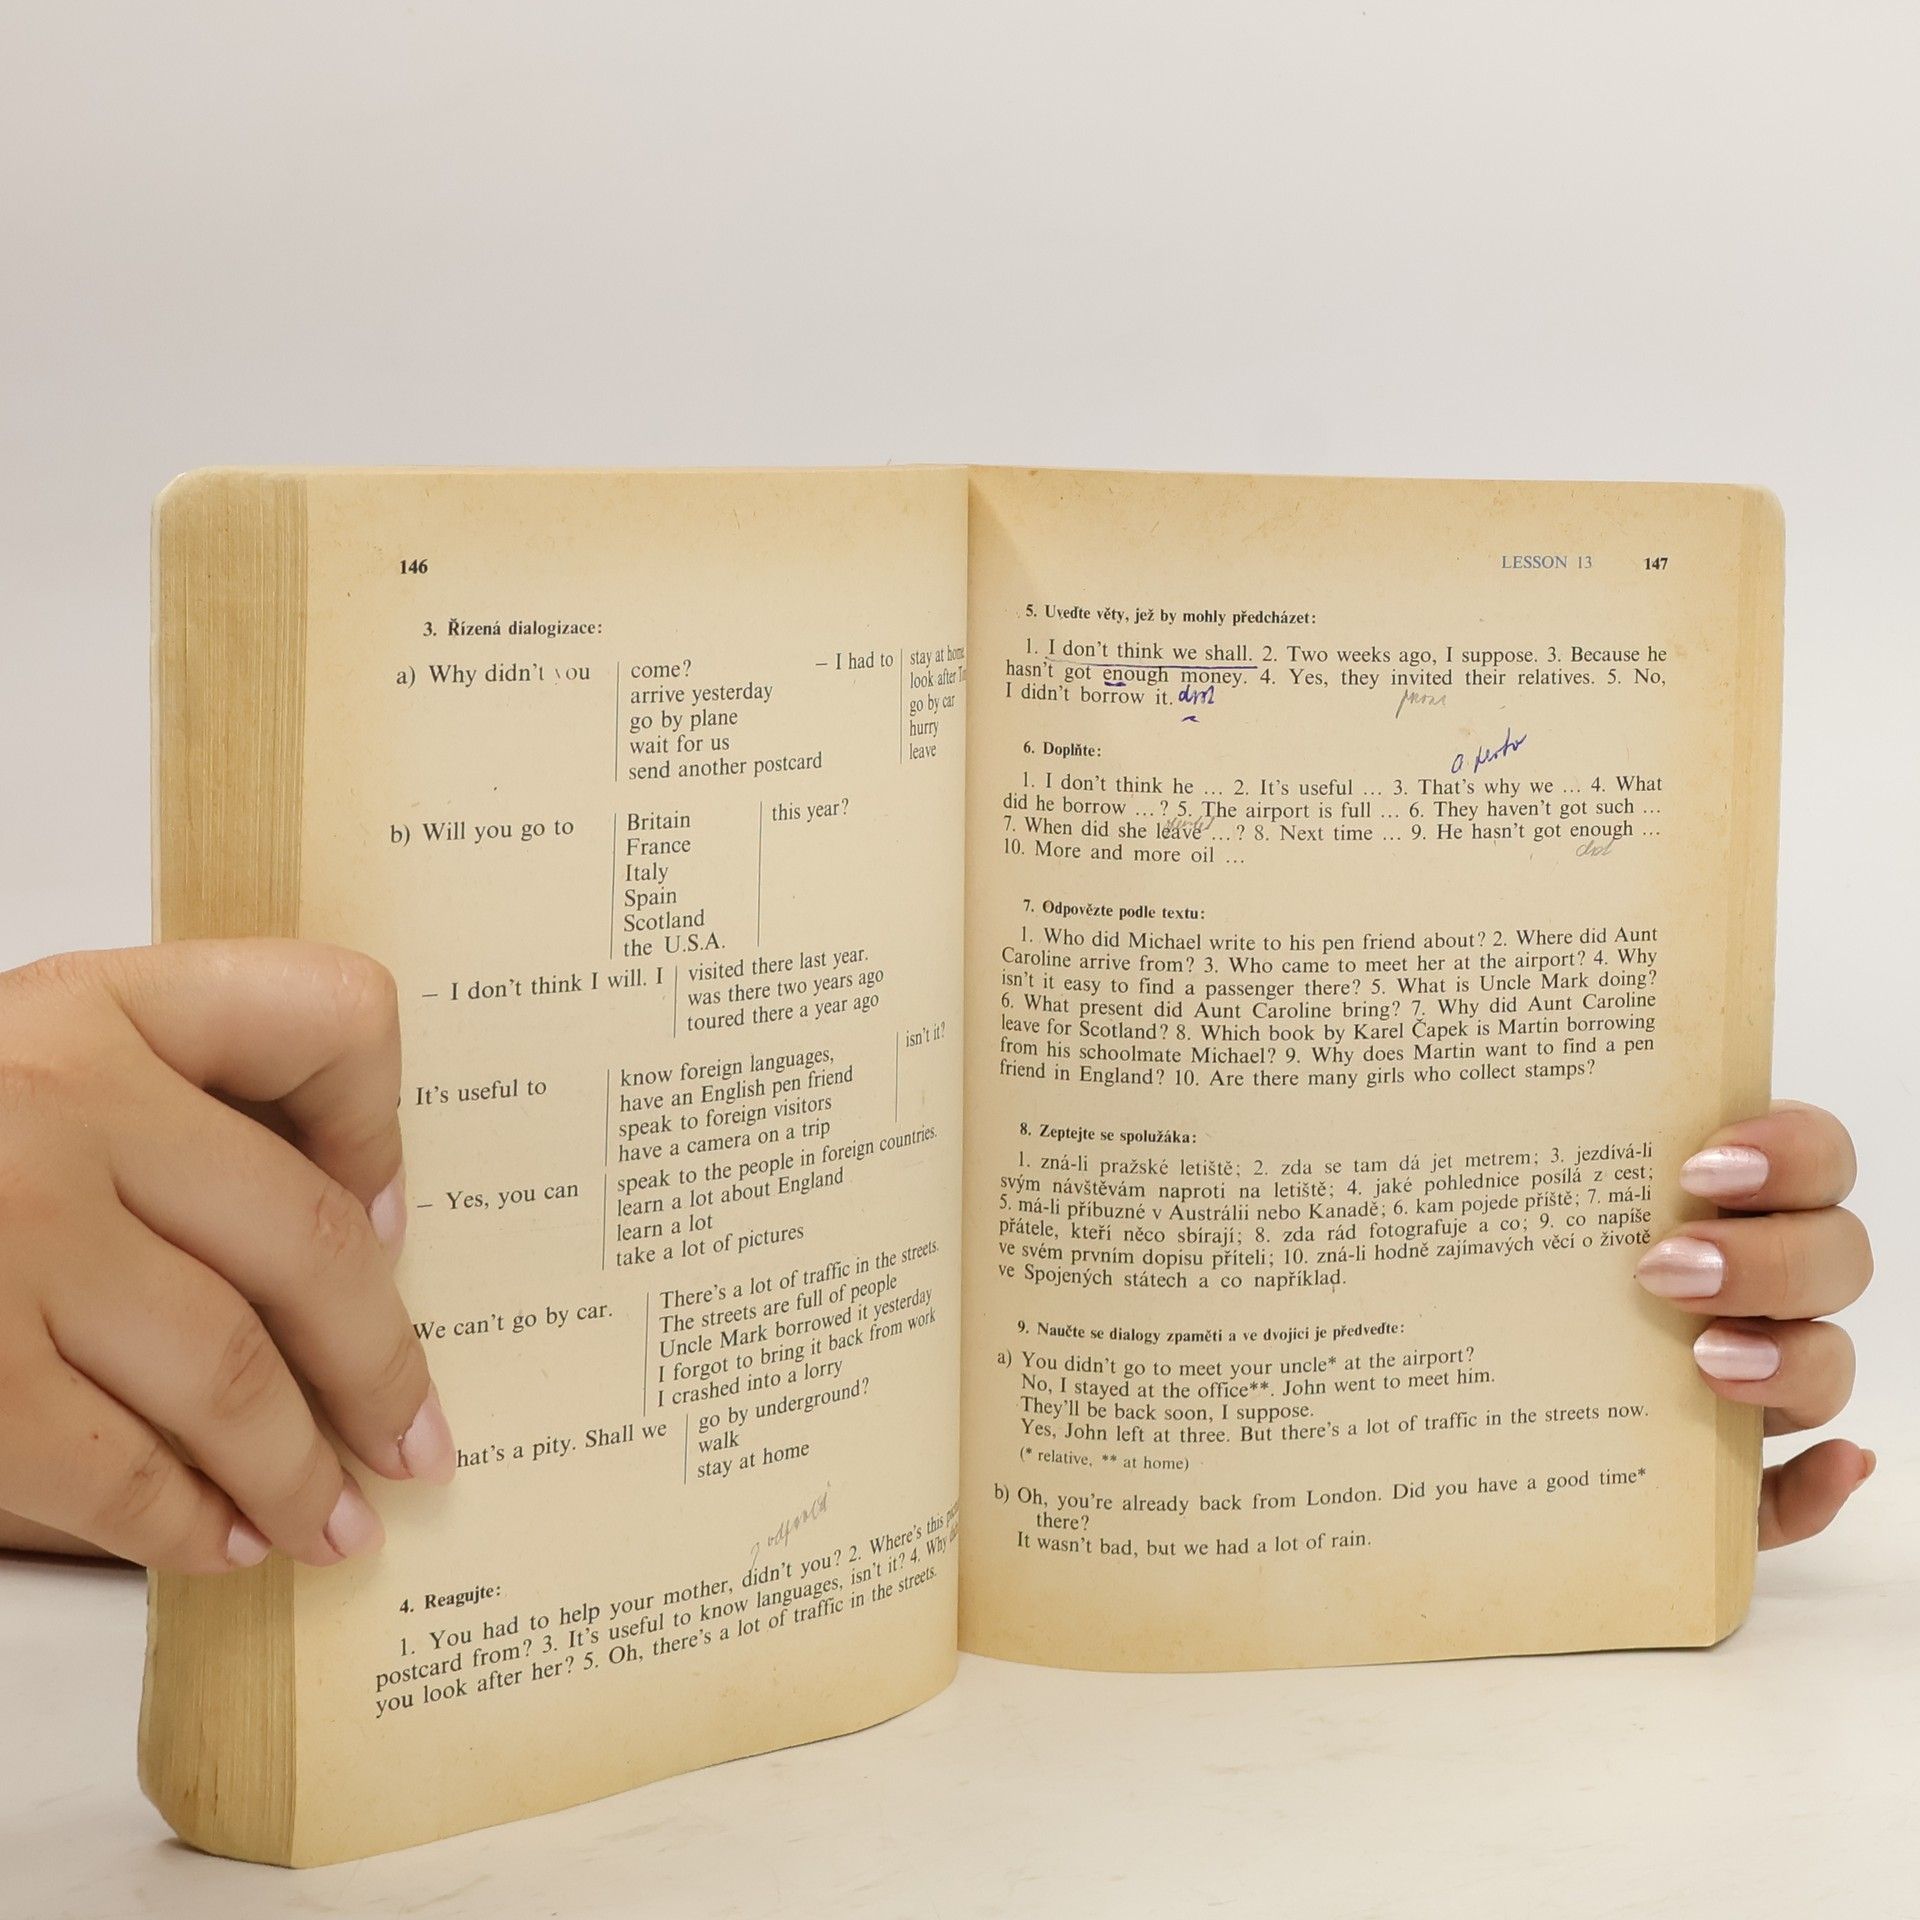 146
3. Řízená dialogizace:
a) Why didn't you
come?
arrive yesterday
go by plane
wait for us
send another postcard
– I had to
stay at home
look after
go by car
hurry
leave
b) Will you go to
Britain
France
Italy
Spain
Scotland
the U.S.A.
this year?
– I don't think I will. I
visited there last year.
was there two years ago
toured there a year ago
) It's useful to
know foreign languages,
have an English pen friend
speak to foreign visitors
have a camera on a trip
isn't it?
– Yes, you can
speak to the people in foreign countries.
learn a lot about England
learn a lot
take a lot of pictures
We can't go by car.
There's a lot of traffic in the streets.
The streets are full of people
Uncle Mark borrowed it yesterday
I forgot to bring it back from work
I crashed into a lorry
hat's a pity. Shall we
go by underground?
walk
stay at home
4. Reagujte:
1. You had to help your mother, didn't you? 2. Where's this
postcard from? 3. It's useful to know languages, isn't it? 4. Why
you look after her? 5. Oh, there's a lot of traffic in the streets.
LESSON 13 147
5. Uveďte věty, jež by mohly předcházet:
1. I don't think we shall. 2. Two weeks ago, I suppose. 3. Because he
hasn't got enough money. 4. Yes, they invited their relatives. 5. No,
I didn't borrow it.
6. Doplňte:
1. I don't think he ... 2. It's useful ... 3. That's why we ... 4. What
did he borrow ...? 5. The airport is full ... 6. They haven't got such ...
7. When did she leave ...? 8. Next time ... 9. He hasn't got enough ...
10. More and more oil ...
7. Odpovězte podle textu:
1. Who did Michael write to his pen friend about? 2. Where did Aunt
Caroline arrive from? 3. Who came to meet her at the airport? 4. Why
isn't it easy to find a passenger there? 5. What is Uncle Mark doing?
6. What present did Aunt Caroline bring? 7. Why did Aunt Caroline
leave for Scotland? 8. Which book by Karel Čapek is Martin borrowing
from his schoolmate Michael? 9. Why does Martin want to find a pen
friend in England? 10. Are there many girls who collect stamps?
8. Zeptejte se spolužáka:
1. zná-li pražské letiště; 2. zda se tam dá jet metrem; 3. jezdívá-li
svým návštěvám naproti na letiště; 4. jaké pohlednice posílá z cest;
5. má-li příbuzné v Austrálii nebo Kanadě; 6. kam pojede příště; 7. má-li
přátele, kteří něco sbírají; 8. zda rád fotografuje a co; 9. co napíše
ve svém prvním dopisu příteli; 10. zná-li hodně zajímavých věcí o životě
ve Spojených státech a co například.
9. Naučte se dialogy zpaměti a ve dvojici je předveďte:
a) You didn't go to meet your uncle* at the airport?
No, I stayed at the office**. John went to meet him.
They'll be back soon, I suppose.
Yes, John left at three. But there's a lot of traffic in the streets now.
(* relative, ** at home)
b) Oh, you're already back from London. Did you have a good time*
there?
It wasn't bad, but we had a lot of rain.